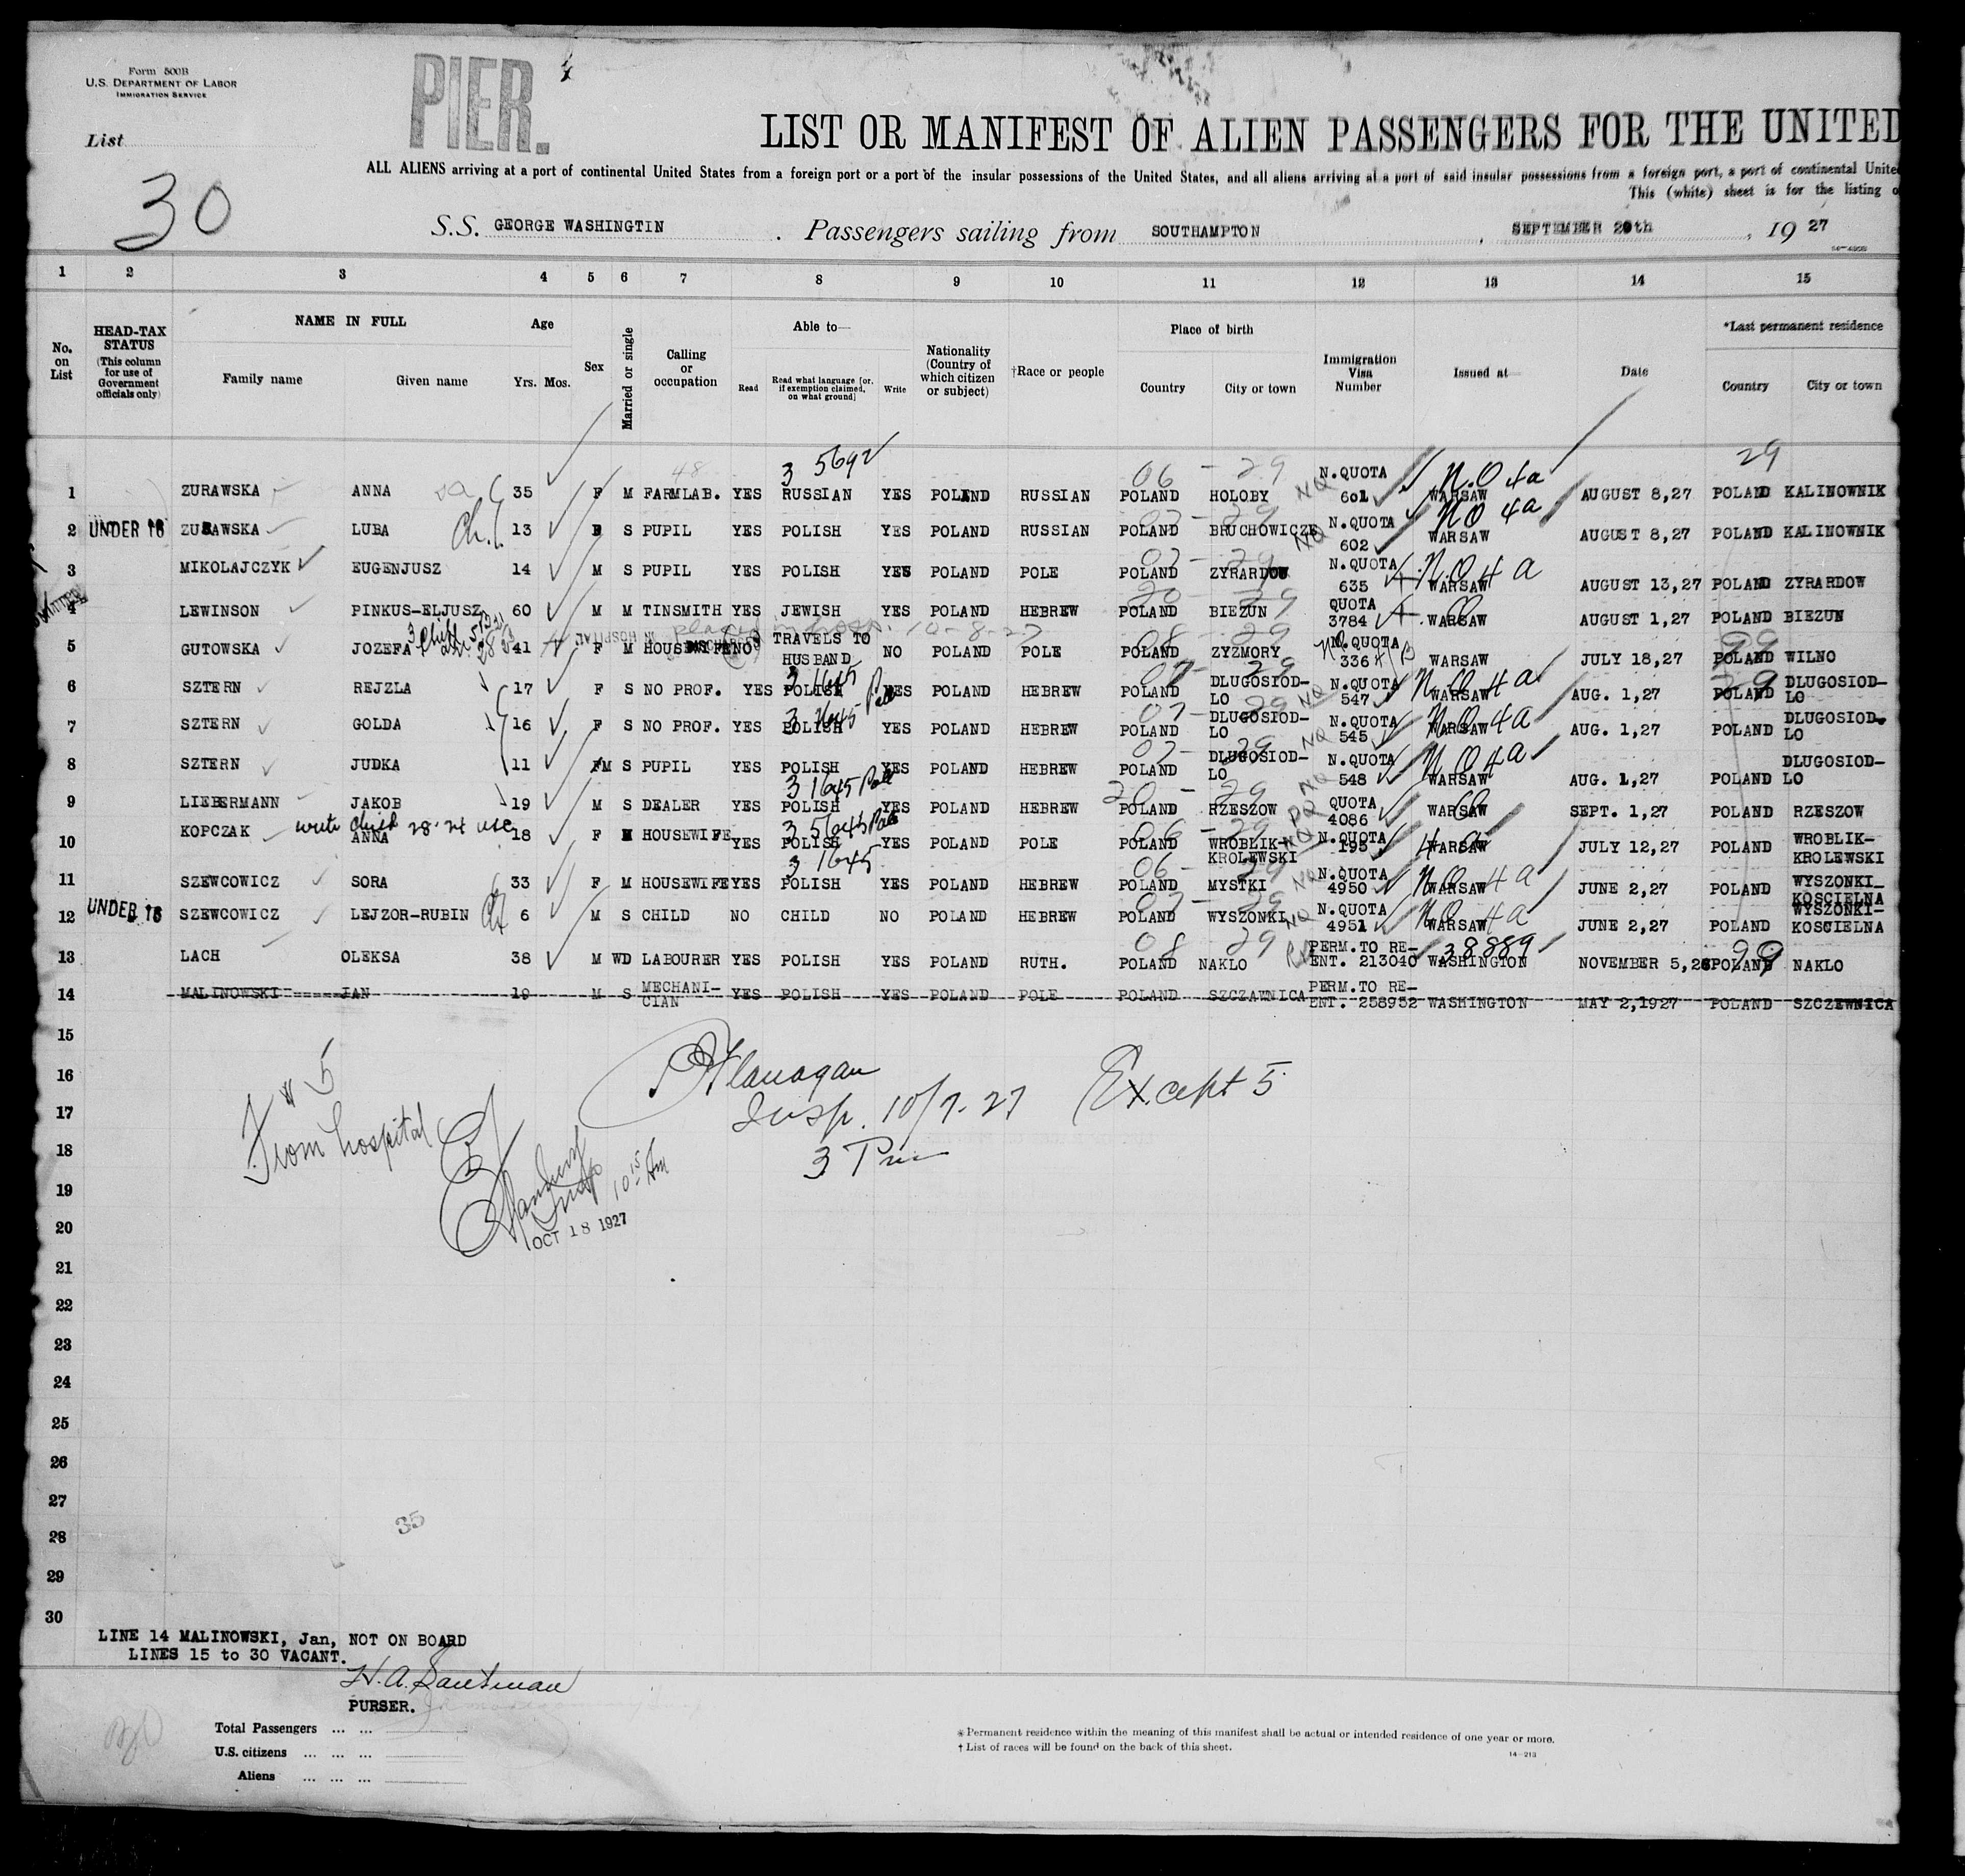 Form 500B
U.S. DEPARTMENT OF LABOR
IMMIGRATION SERVICE
PIER.
List
30
LIST OR MANIFEST OF ALIEN PASSENGERS FOR THE UNITED
ALL ALIENS arriving at a port of continental United States from a foreign port or a port of the insular possessions of the United States, and all aliens arriving at a port of said insular possessions from a foreign port, a port of continental Unite
This (white) sheet is for the listing o
S.S. GEORGE WASHINGTIN . Passengers sailing from SOUTHAMPTON , SEPTEMBER 29th , 19 27
1 2 3 4 5 6 7 8 9 10 11 12 13 14 15
No. on List
HEAD-TAX STATUS (This column for use of Government officials only)
NAME IN FULL
Family name Given name
Age
Yrs. Mos.
Sex
Married or single
Calling or occupation
Able to—
Read
Read what language [or, if exemption claimed, on what ground]
Write
Nationality (Country of which citizen or subject)
†Race or people
Place of birth
Country City or town
Immigration Visa Number
Issued at—
Date
*Last permanent residence
Country City or town
3 5692 06 - 29 29
1 ZURAWSKA ANNA 35 F M FARMLAB. YES RUSSIAN YES POLAND RUSSIAN POLAND HOLOBY NQ N.QUOTA 601 WARSAW N.Q 4a AUGUST 8,27 POLAND KALINOWNIK
2 UNDER 16 ZURAWSKA LUBA Ch. 13 S PUPIL YES POLISH YES POLAND RUSSIAN POLAND BRUCHOWICZE NQ N.QUOTA 602 WARSAW NQ 4a AUGUST 8,27 POLAND KALINOWNIK
3 MIKOLAJCZYK EUGENJUSZ 14 M S PUPIL YES POLISH YES POLAND POLE POLAND ZYRARDOW N.QUOTA 635 WARSAW N.Q 4a AUGUST 13,27 POLAND ZYRARDOW
4 LEWINSON PINKUS-ELJUSZ 60 M M TINSMITH YES JEWISH YES POLAND HEBREW POLAND BIEZUN QUOTA 3784 WARSAW AUGUST 1,27 POLAND BIEZUN
placed in hosp. 10-8-27
5 GUTOWSKA JOZEFA 41 F M HOUSEWIFE NO TRAVELS TO HUSBAND NO POLAND POLE POLAND ZYZMORY N.QUOTA 336 WARSAW JULY 18,27 POLAND WILNO
6 SZTERN REJZLA 17 F S NO PROF. YES POLISH YES POLAND HEBREW POLAND DLUGOSIOD-LO NQ N.QUOTA 547 WARSAW N.Q 4a AUG. 1,27 POLAND DLUGOSIOD-LO
7 SZTERN GOLDA 16 F S NO PROF. YES POLISH 3 1645 YES POLAND HEBREW POLAND DLUGOSIOD-LO NQ N.QUOTA 545 WARSAW N.Q 4a AUG. 1,27 POLAND DLUGOSIOD-LO
8 SZTERN JUDKA 11 M S PUPIL YES POLISH YES POLAND HEBREW POLAND DLUGOSIOD-LO NQ N.QUOTA 548 WARSAW N.Q 4a AUG. 1,27 POLAND DLUGOSIOD-LO
3 1645
9 LIEBERMANN JAKOB 19 M S DEALER YES POLISH YES POLAND HEBREW POLAND RZESZOW QUOTA 4086 WARSAW SEPT. 1,27 POLAND RZESZOW
10 KOPCZAK ANNA 18 F M HOUSEWIFE YES POLISH YES POLAND POLE POLAND WROBLIK-KROLEWSKI N.QUOTA 195 WARSAW JULY 12,27 POLAND WROBLIK-KROLEWSKI
3 1645
11 SZEWCOWICZ SORA 33 F M HOUSEWIFE YES POLISH YES POLAND HEBREW POLAND MYSTKI NQ N.QUOTA 4950 WARSAW N.Q 4a JUNE 2,27 POLAND WYSZONKI_KOSCIELNA
12 UNDER 16 SZEWCOWICZ LEJZOR-RUBIN 6 M S CHILD NO CHILD NO POLAND HEBREW POLAND WYSZONKI NQ N.QUOTA 4951 WARSAW NQ 4a JUNE 2,27 POLAND WYSZONKI-KOSCIELNA
13 LACH OLEKSA 38 M WD LABOURER YES POLISH YES POLAND RUTH. POLAND NAKLO PERM.TO RE-ENT. 213040 WASHINGTON 38889 NOVEMBER 5,26 POLAND NAKLO
14 MALINOWSKI JAN 19 M S MECHANI-CIAN YES POLISH YES POLAND POLE POLAND SZCZAWNICA PERM.TO RE-ENT. 258952 WASHINGTON MAY 2,1927 POLAND SZCZEWNICA
15
16 # 5 Flanagan Except 5
17 From hospital Insp. 10/7-27
18 3 Pm
19 Insp 10 15 Am
20 OCT 18 1927
21
22
23
24
25
26
27
28 35
29
30
LINE 14 MALINOWSKI, Jan, NOT ON BOARD
LINES 15 to 30 VACANT.
PURSER.
Total Passengers ... ...
U.S. citizens ... ... ...
Aliens ... ... ...
* Permanent residence within the meaning of this manifest shall be actual or intended residence of one year or more.
† List of races will be found on the back of this sheet.
14—213